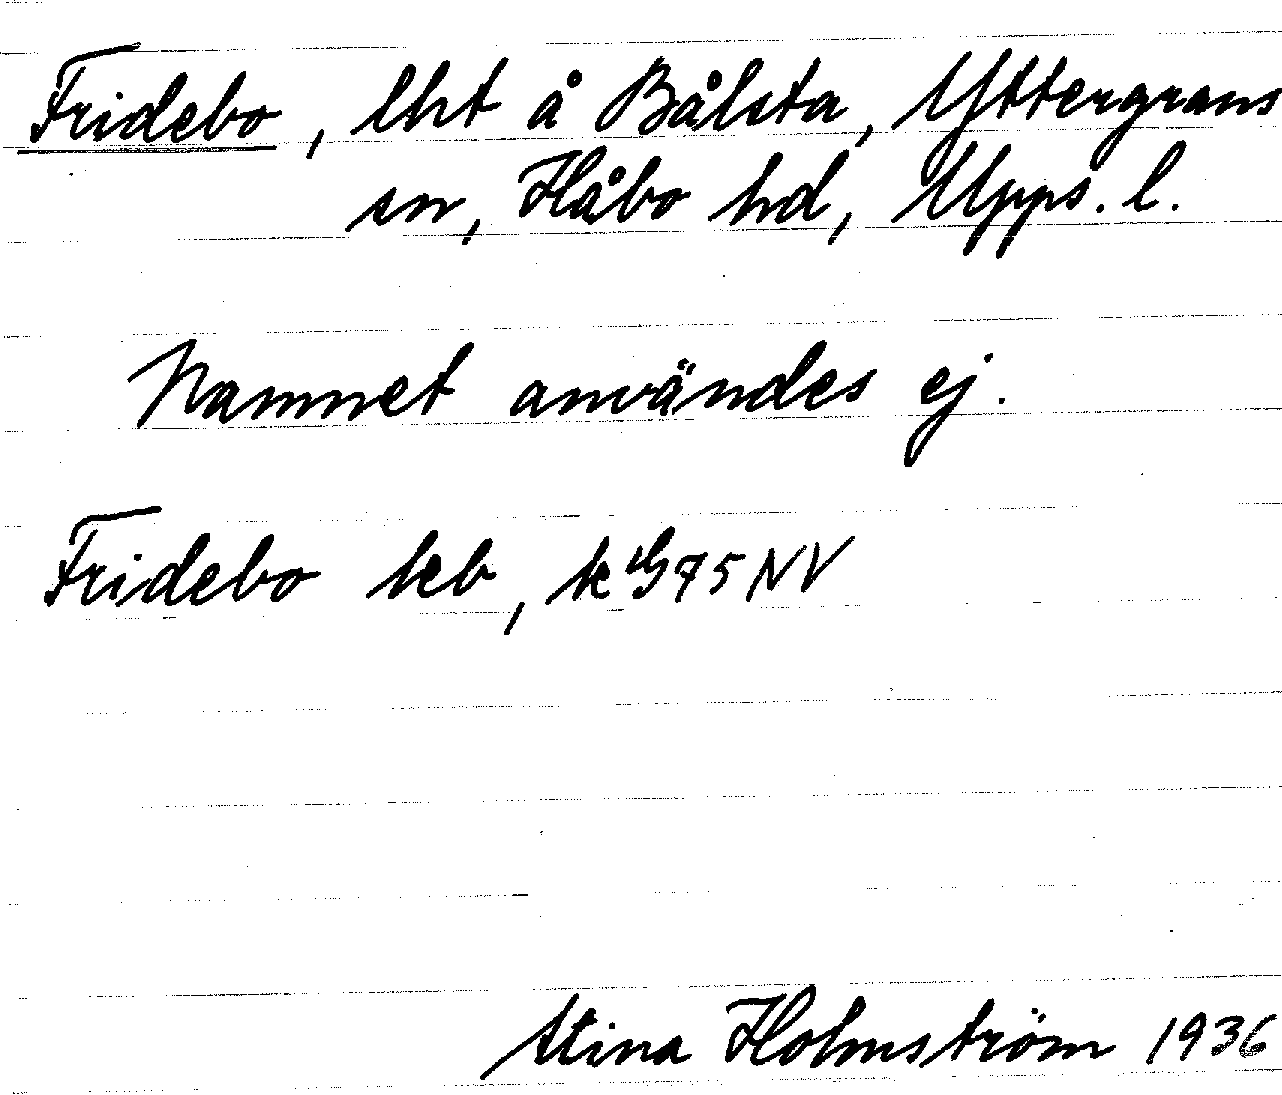 Fridebo, lht å Bålsta, Yttergrans
sn, Håbo hd, Upps. l.
Namnet användes ej.
Fridebo keb, k G75NV
Stina Holmström 1936